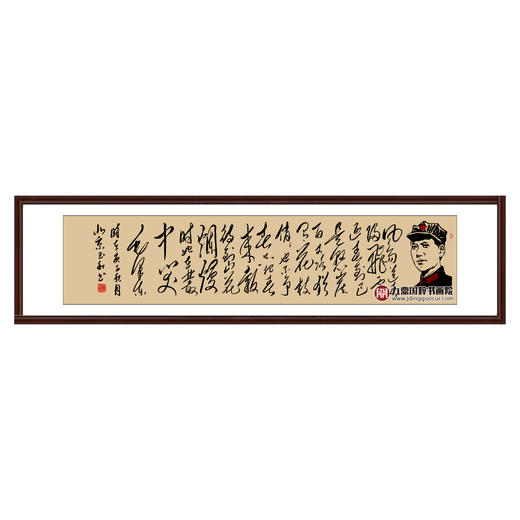 风雨送春
归飞雪
迎春到已
是悬崖
百丈冰犹
有花枝
俏也不争
春只把春
来报
待到山花
烂漫
时她在丛
中笑
毛泽东
时在庚子秋月
北京玉和书
九鼎国粹书画院
www.jdingguocui.com